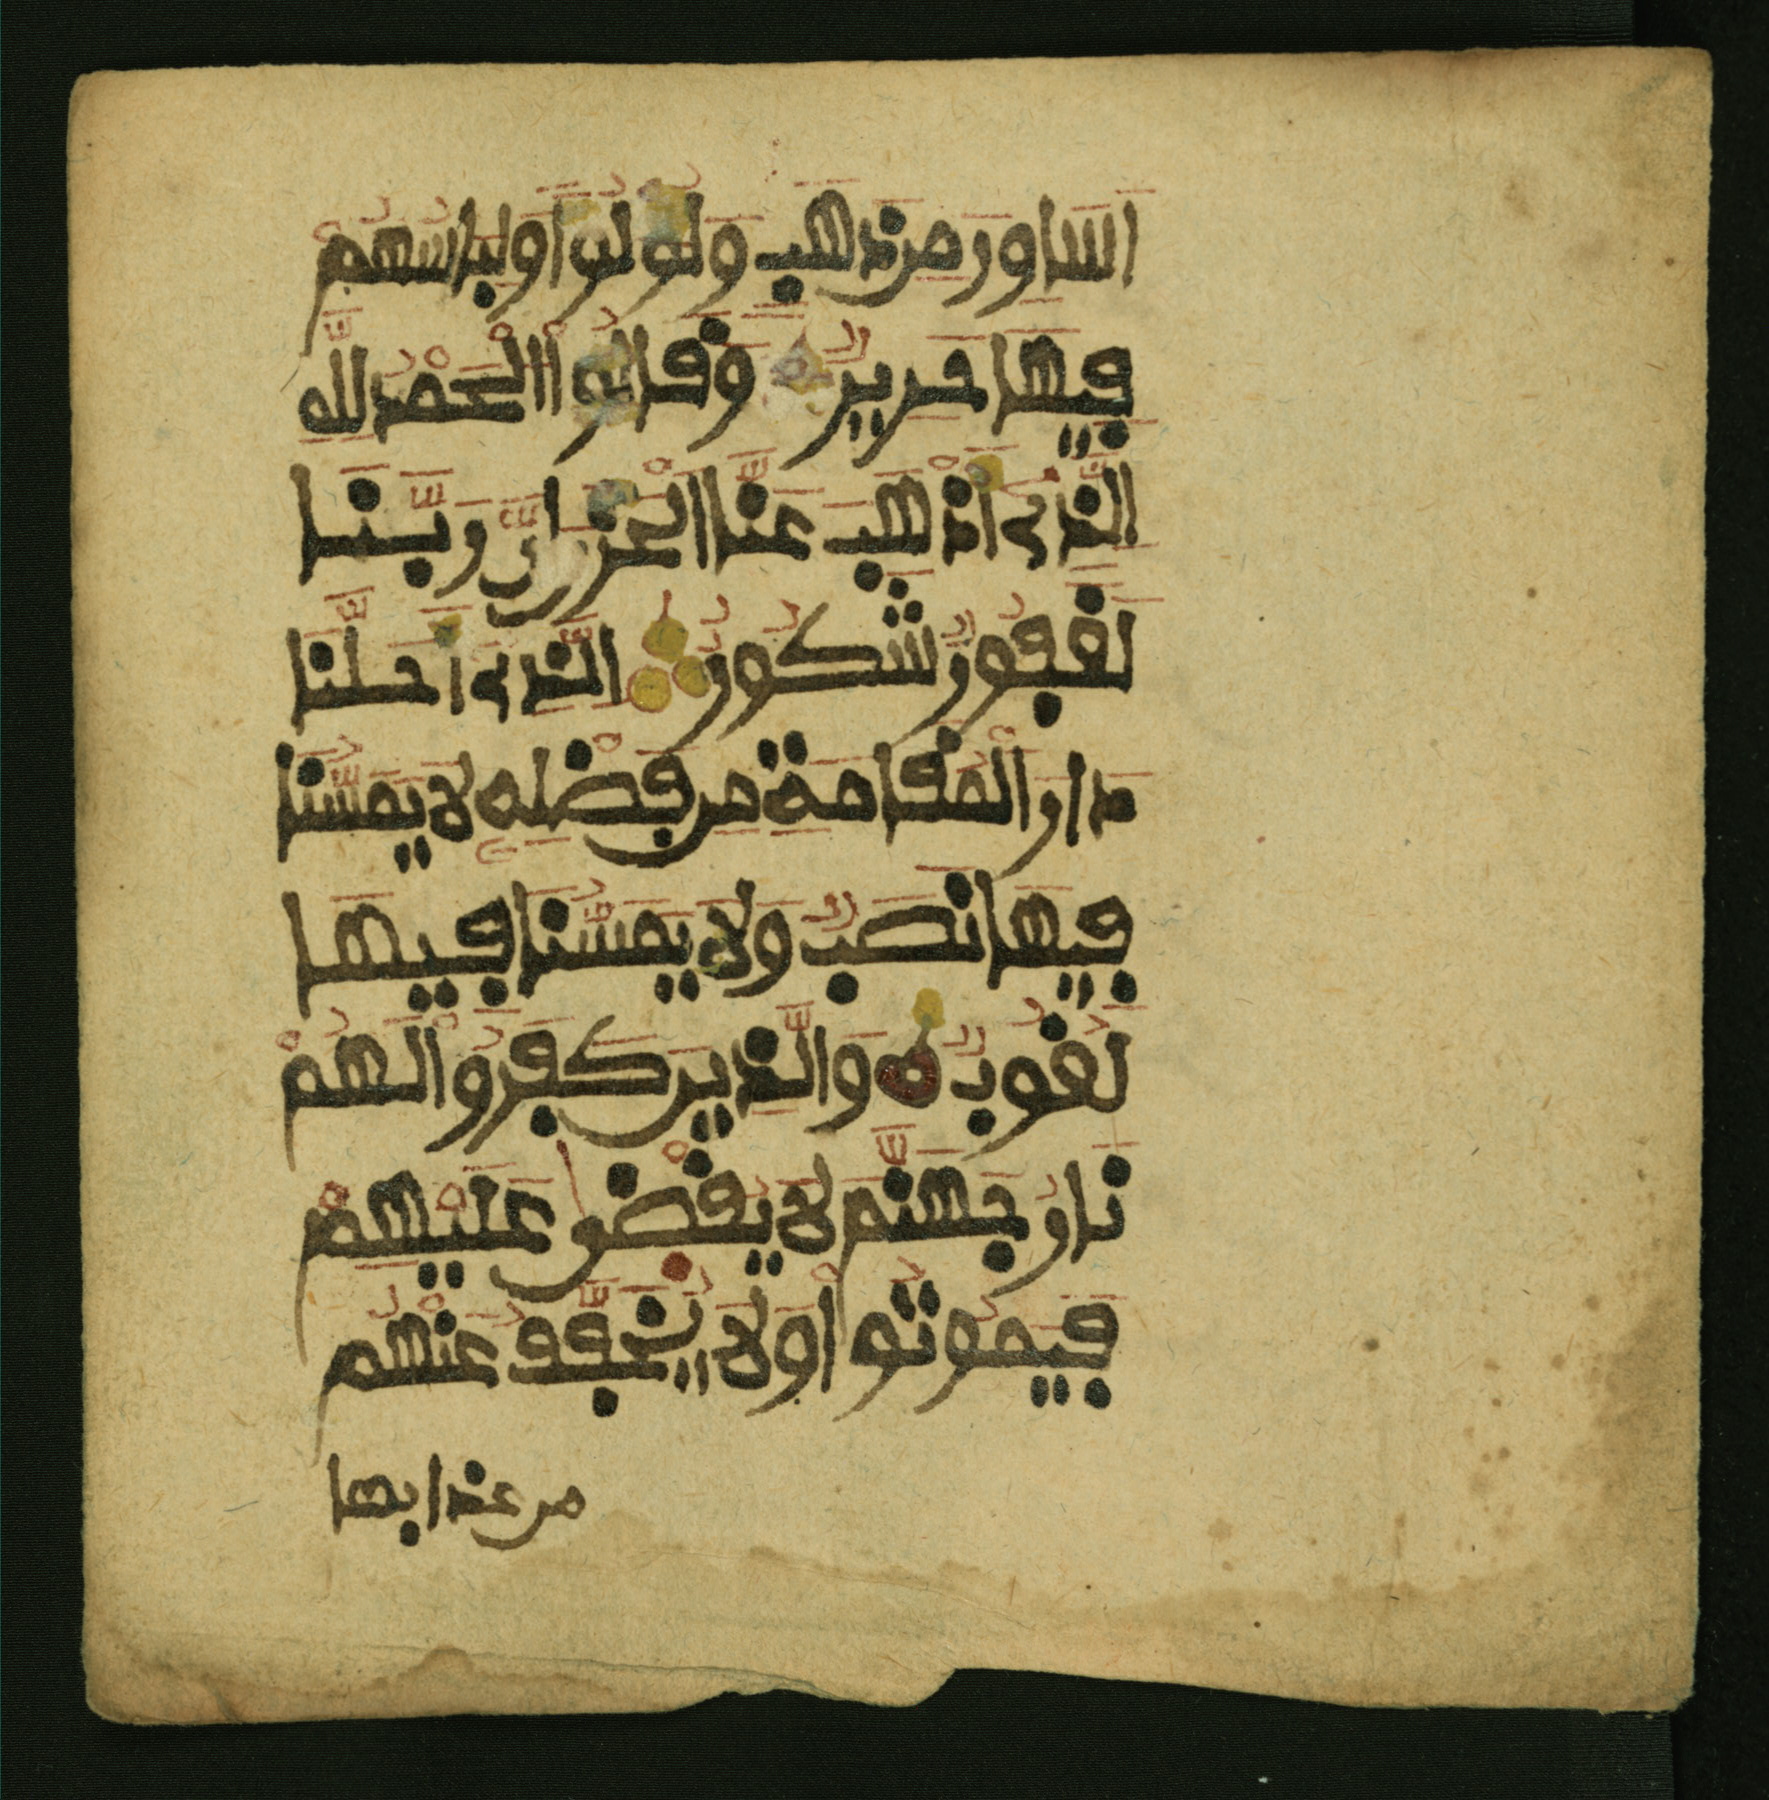 اَسَاوِرَ مِن ذَهَبٍ وَلُولُؤًا وَلِبَاسُهُمْ
فِيهَا حَرِيرٌ وَقَالُوا اْلْحَمْدُ لِلَّهِ
الَّذِى أَذْهَبَ عَنَّا اَلْحَزَنَ إِنَّ رَبَّنَا
لَغَفُورٌ شَكُورٌ الَّذِى أَحَلَّنَا
دَارَ اَلْمُقَامَةِ مِن فَضْلِهِ لَا يَمَسُّنَا
فِيهَا نَصَبٌ وَلَا يَمَسُّنَا فِيهَا
لُغُوبٌ وَالَّذِينَ كَفَرُوا لَهُمْ
نَارُ جَهَنَّمَ لَا يُقْضَى عَلَيْهِمْ
فَيَمُوتُواْ وَلَا يُخَفَّفُ عَنْهُم
من عذابها